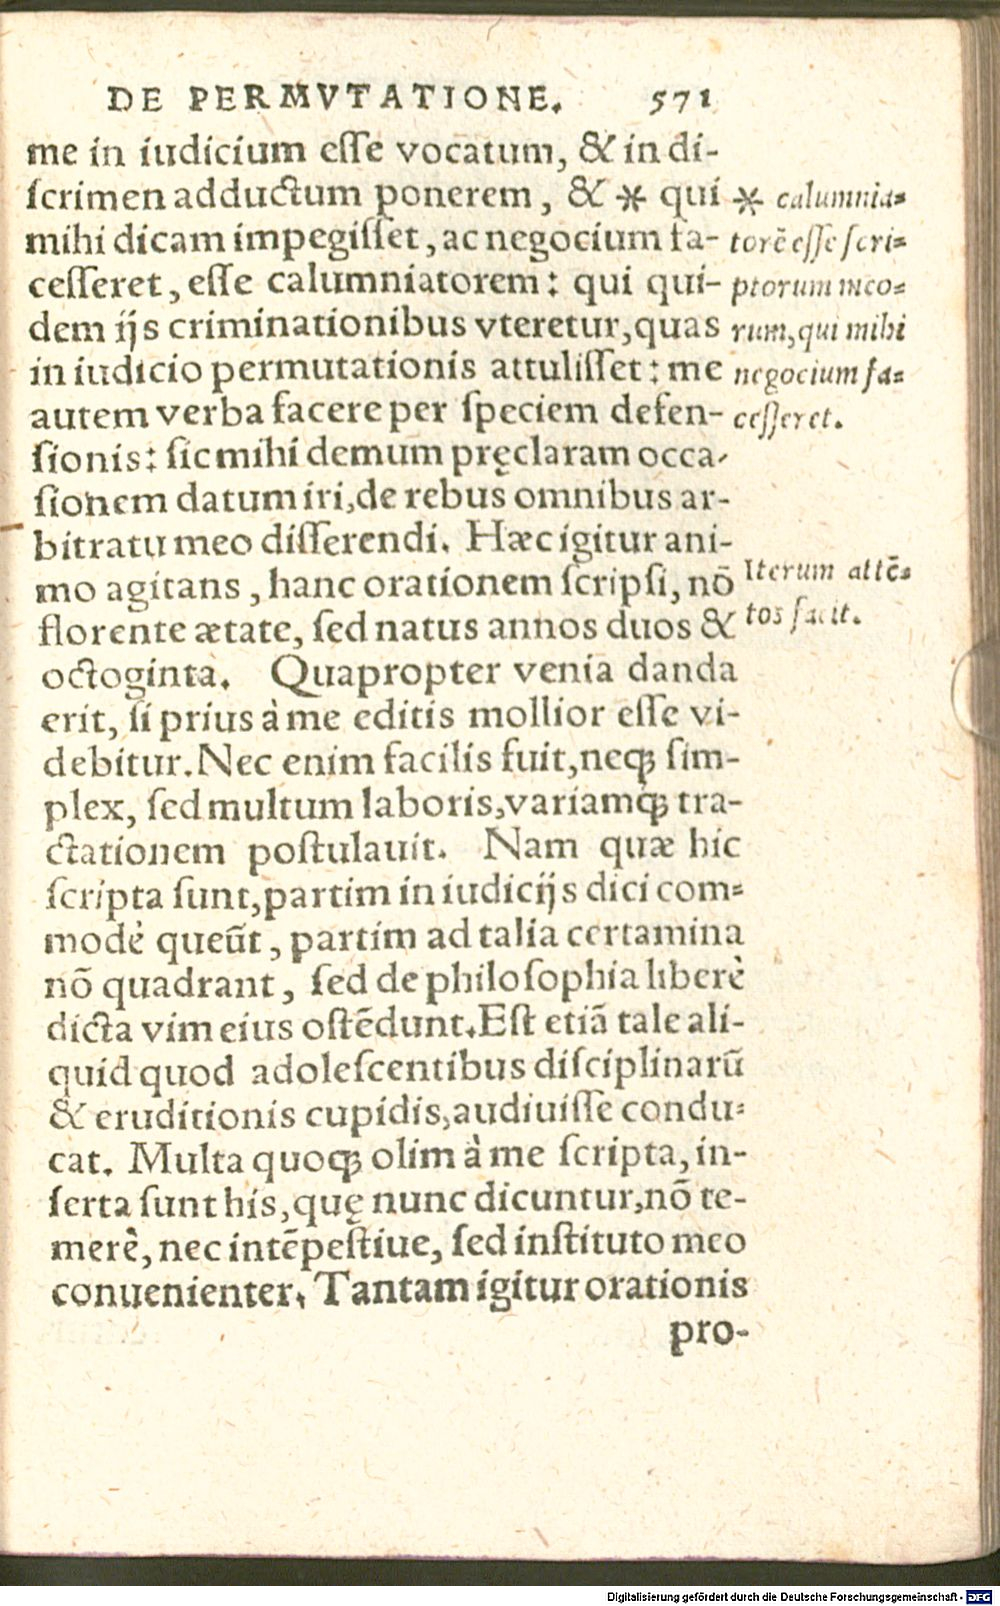 DE PERMVTATIONE. 571
me in iudicium eſſe vocatum, & in di-
ſcrimen adductum ponerem, & * qui
mihi dicam impegiſſet, ac negocium fa-
ceſſeret, eſſe calumniatorem: qui qui-
dem ijs criminationibus vteretur, quas
in iudicio permutationis attuliſſet: me
autem verba facere per ſpeciem defen-
ſionis: ſic mihi demum pręclaram occa-
ſionem datum iri, de rebus omnibus ar-
bitratu meo diſſerendi. Hæc igitur ani-
mo agitans, hanc orationem ſcripſi, nō
florente ætate, ſed natus annos duos &
octoginta. Quapropter venia danda
erit, ſi prius à me editis mollior eſſe vi-
debitur. Nec enim facilis fuit, neqꝫ ſim-
plex, ſed multum laboris, variamqꝫ tra-
ctationem poſtulauit. Nam quæ hic
ſcripta ſunt, partim in iudicijs dici com-
modè queūt, partim ad talia certamina
nō quadrant, ſed de philoſophia liberè
dicta vim eius oſtēdunt. Eſt etiā tale ali-
quid quod adoleſcentibus diſciplinarū
& eruditionis cupidis, audiuiſſe condu-
cat. Multa quoqꝫ olim à me ſcripta, in-
ſerta ſunt his, quę nunc dicuntur, nō te-
merè, nec intēpeſtiue, ſed inſtituto meo
conuenienter. Tantam igitur orationis
pro-
* calumnia-
torē eſſe ſcri-
ptorum meo-
rum, qui mihi
negocium fa-
ceſſeret.
Iterum attē-
tos facit.
Digitalisierung gefördert durch die Deutsche Forschungsgemeinschaft - DFG